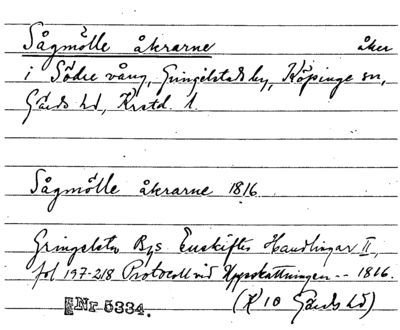 Sågmölle åkrarne åker
i Södre vång, Gringelstads by, Köpinge sn,
Gärds hd, Krstd. l.
Sågmölle åkrarne 1816
Gringelsta Bys Enskiftes Handlingar II,
fol 197-218 Protocoll vid Uppskattningen -- 1816.
(K 10 Gärds hd)
Nr 5334.